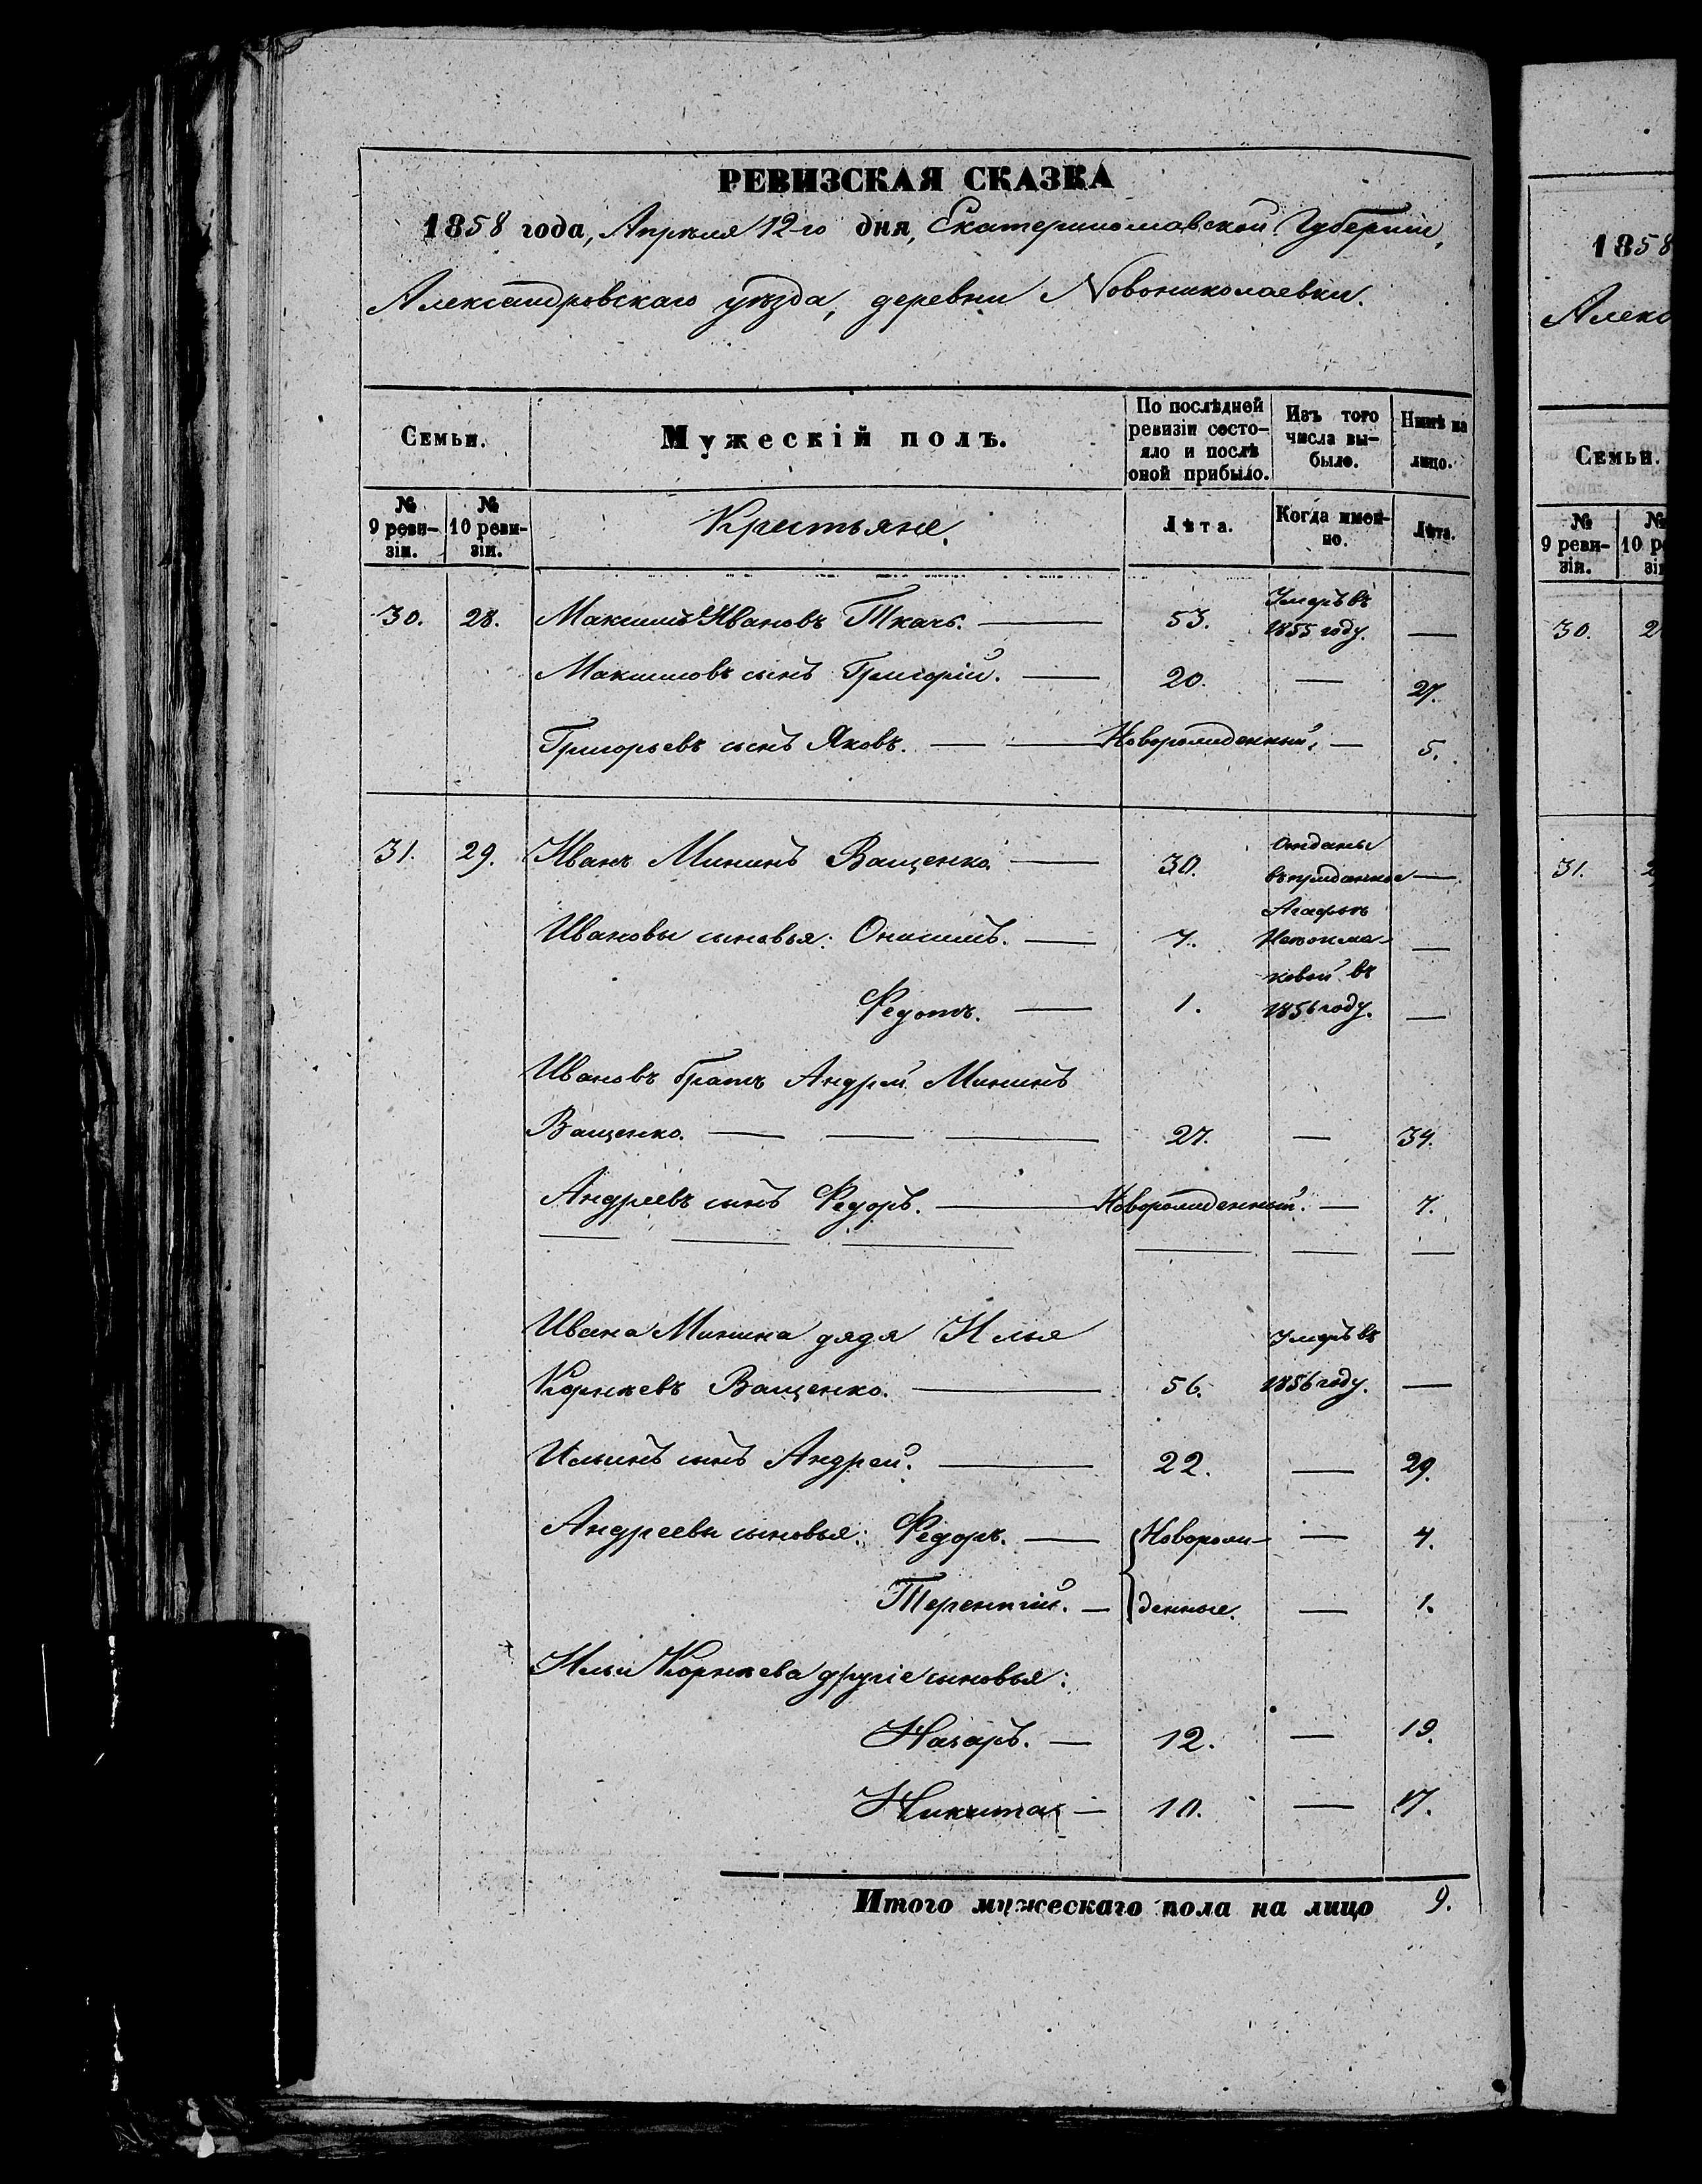 РЕВИЗСКАЯ СКАЗКА
1858 года, Апрѣля 12го дня, Екатеринославской Губерніи,
Александровскаго уѣзда, деревни Новониколаевки.
Семьи. Мужескій полъ. По послѣдней ревизіи состояло и послѣ оной прибыло. Изъ того числа выбыло. Нынѣ на лицо.
№ 9 ревизіи. № 10 ревизіи. Крестьяне. Лѣта. Когда именно. Лѣта.
30. 28. Максимъ Ивановъ Ткачь. — 53. Умеръ въ 1855 году. —
Максимовъ сынъ Григорій. — 20. — 27.
Григорьевъ сынъ Яковъ. — — Новорожденный. — 5.
31. 29. Иванъ Мининъ Ващенко. — 30. Отданы —
въ приданное
Ивановы сыновья: Онисимъ. — 7. —
Федотъ. — 1. въ 1856 году. —
Ивановъ братъ Андрей Мининъ
Ващенко. — — — 27. — 34.
Андреевъ сынъ Федоръ. — Новорожденный. — 7.
Ивана Минина дядя Илья
Корнѣевъ Ващенко. — 56. Умеръ въ 1856 году. —
Ильинъ сынъ Андрей. — 22. — 29.
Андреевы сыновья: Федоръ. — Новорож- — 4.
Терентій. — денные. — 1.
Ильи Корнѣева другіе сыновья:
Назаръ. — 12. — 19.
Никита — 10. — 17.
Итого мужескаго пола на лицо 9.
1858
Алекс
Семьи.
№ 9 ревизіи. № 10 ре зі
30. 2
31. 2